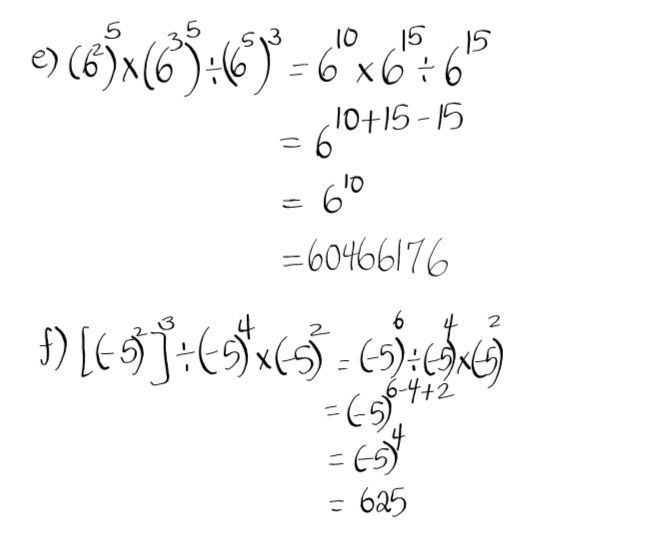 e) (6²)⁵ × (6³)⁵ ÷ (6⁵)³ = 6¹⁰ × 6¹⁵ ÷ 6¹⁵
= 6¹⁰⁺¹⁵⁻¹⁵
= 6¹⁰
= 60466176
f) [(-5)²]³ ÷ (-5)⁴ × (-5)² = (-5)⁶ ÷ (-5)⁴ × (-5)²
= (-5)⁶⁻⁴⁺²
= (-5)⁴
= 625